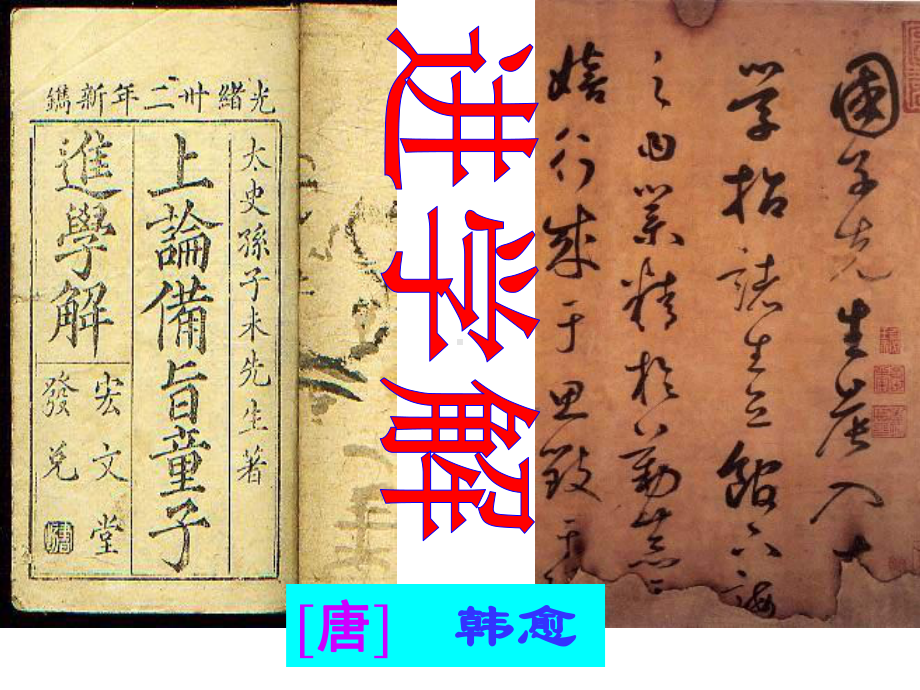 光緒卅二年新鐫
太史孫子未先生著
上論備旨童子
進學解
宏文堂
發兌
进学解
國子先生晨入太
學招諸生立館下誨
之曰業精於勤荒于
嬉行成于思毀于
[唐] 韩愈